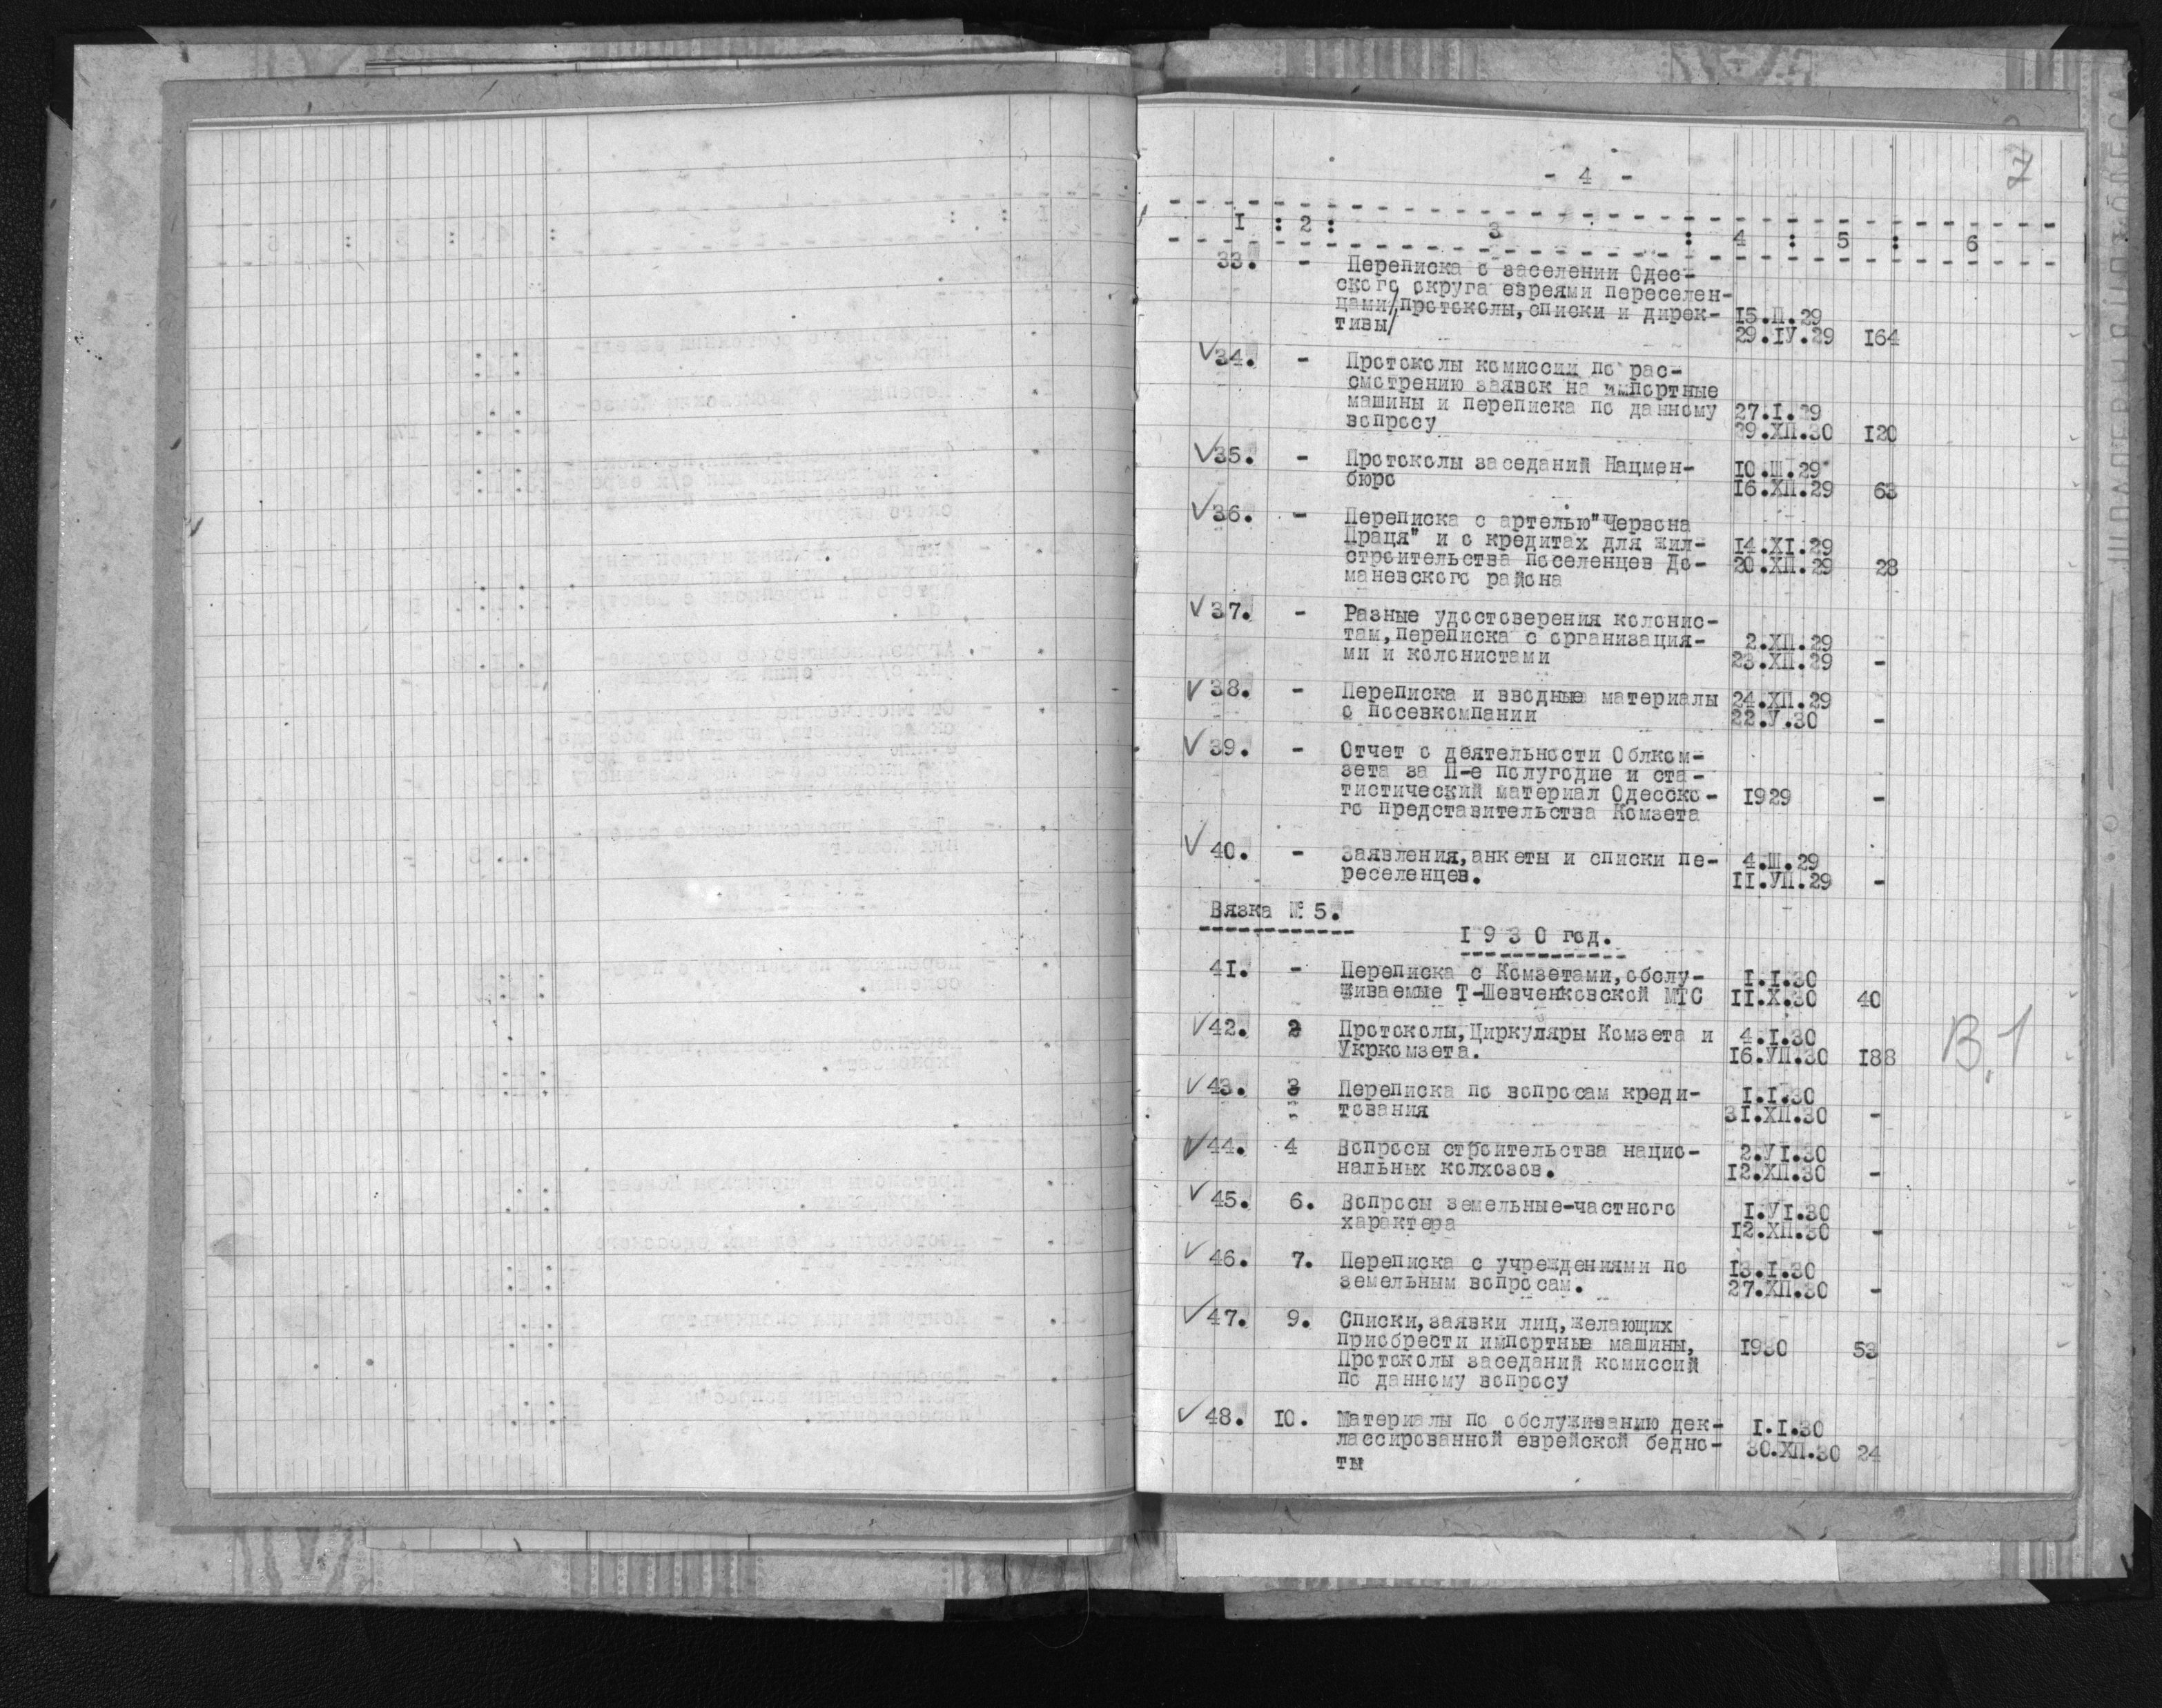 7
- 4 -
I : 2 : 3 : 4 : 5 : 6
33. - Переписка о заселении Одес-
ского округа евреями переселен-
цами/протоколы,списки и дирек- 15.П.29
тивы/ 29.IУ.29 164
34. - Протоколы комиссии по рас-
смотрению заявок на импортные
машины и переписка по данному 27.I.29
вопросу 29.ХП.30 120
35. - Протоколы заседаний Нацмен- 10.Ш.29
бюро 16.ХП.29 63
36. - Переписка с артелью"Червона
Праця" и о кредитах для жил- 14.XI.29
строительства поселенцев До- 20.ХП.29 28
маневского района
37. - Разные удостоверения колонис-
там,переписка с организация- 2.ХП.29
ми и колонистами 23.ХП.29 -
38. - Переписка и вводные материалы 24.ХП.29
о посевкомпании 22.У.30 -
39. - Отчет о деятельности Облком-
зета за П-е полугодие и ста-
тистический материал Одесско- 1929 -
го представительства Комзета
40. - Заявления,анкеты и списки пе- 4.Ш.29
реселенцев. II.УП.29 -
Вязка № 5.
I 9 3 0 год.
41. - Переписка с Комзетами,обслу- I.I.30
живаемые Т-Шевченковской МТС II.X.30 40
42. 2 Протоколы,Циркуляры Комзета и 4.I.30
Укркомзета. 16.УП.30 188
В,1
43. 3 Переписка по вопросам креди- I.I.30
тования 31.ХП.30 -
44. 4 Вопросы строительства нацио- 2.УI.30
нальных колхозов. 12.ХП.30 -
45. 6. Вопросы земельные-частного I.УI.30
характера 12.ХП.30 -
46. 7. Переписка с учреждениями по 13.I.30
земельным вопросам. 27.ХП.30 -
47. 9. Списки,заявки лиц,желающих
приобрести импортные машины, 1930 53
Протоколы заседаний комиссий
по данному вопросу
48. 10. Материалы по обслуживанию дек- I.I.30
лассированной еврейской бедно- 30.ХП.30 24
ты